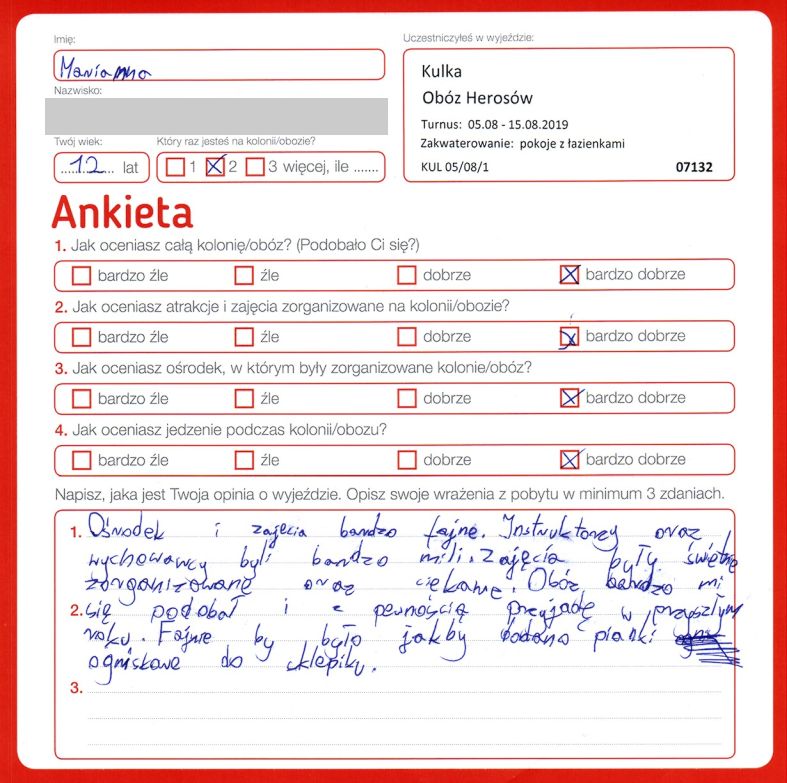 Imię:
Marianna
Nazwisko:
Twój wiek:
12 lat
Który raz jesteś na kolonii/obozie?
1 2 3 więcej, ile .......
Uczestniczyłeś w wyjeździe:
Kulka
Obóz Herosów
Turnus: 05.08 - 15.08.2019
Zakwaterowanie: pokoje z łazienkami
KUL 05/08/1 07132
Ankieta
1. Jak oceniasz całą kolonię/obóz? (Podobało Ci się?)
bardzo źle źle dobrze bardzo dobrze
2. Jak oceniasz atrakcje i zajęcia zorganizowane na kolonii/obozie?
bardzo źle źle dobrze bardzo dobrze
3. Jak oceniasz ośrodek, w którym były zorganizowane kolonie/obóz?
bardzo źle źle dobrze bardzo dobrze
4. Jak oceniasz jedzenie podczas kolonii/obozu?
bardzo źle źle dobrze bardzo dobrze
Napisz, jaka jest Twoja opinia o wyjeździe. Opisz swoje wrażenia z pobytu w minimum 3 zdaniach.
1. Ośrodek i zajęcia bardzo fajne. Instruktorzy oraz
wychowawcy byli bardzo mili. Zajęcia były świetnie
zorganizowane oraz ciekawe. Obóz bardzo mi
2. się podobał i z pewnością przyjadę w przyszłym
roku. Fajnie by było jakby dodano pianki
ogniskowe do sklepiku.
3.